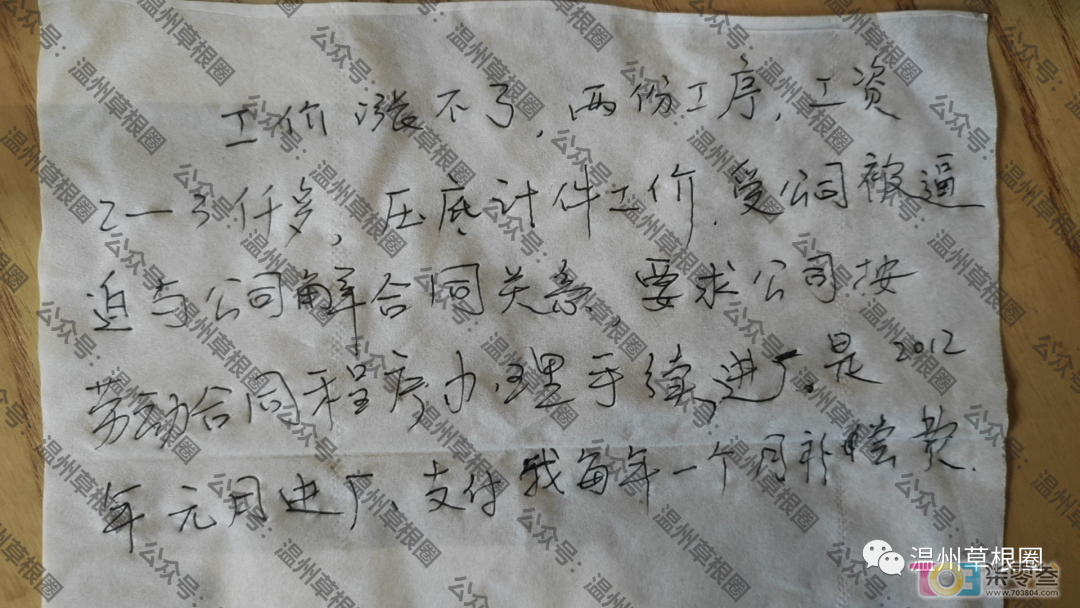 工价涨不了，两份工序，工资
2一3仟多，压底计件工价．受公司被逼
迫与公司解合同关系，要求公司按
劳动合同程序办理手续，进厂是2012
年元月进厂、支付我每年一个月补偿费．
公众号：温州草根圈
温州草根圈
703 柒零叁
www.703804.com